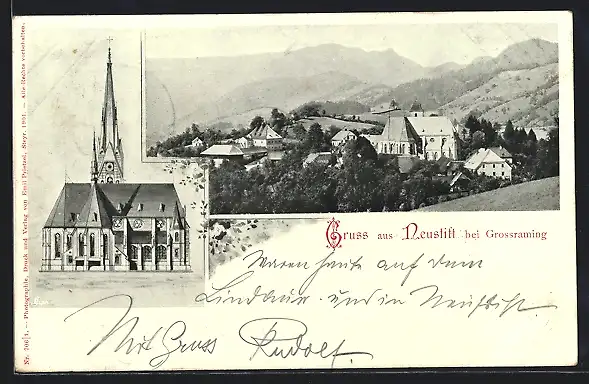 Gruss aus Neustift bei Grossraming
Waren heute auf dem
Lindau und in Neustift.
Mit Gruss Rudolf
Photographie, Druck und Verlag von Emil Prietzel, Steyr. 1901. — Alle Rechte vorbehalten.